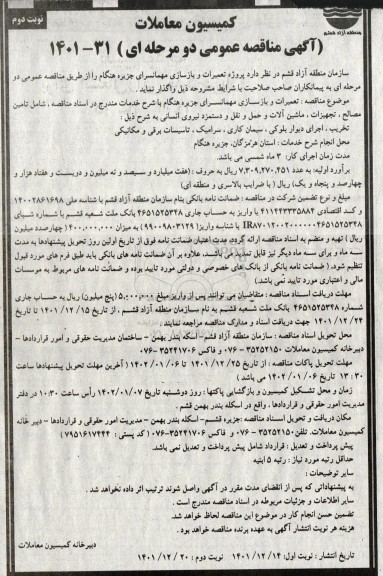 نوبت دوم
منطقه آزاد قشم
کمیسیون معاملات
(آگهی مناقصه عمومی دو مرحله ای ) ۳۱-۱۴۰۱
سازمان منطقه آزاد قشم در نظر دارد پروژه تعمیرات و بازسازی مهمانسرای جزیره هنگام را از طریق مناقصه عمومی دو
مرحله ای به پیمانکاران صاحب صلاحیت با شرایط مشروحه ذیل واگذار نماید .
موضوع مناقصه : تعمیرات و بازسازی مهمانسرای جزیره هنگام با شرح خدمات مندرج در اسناد مناقصه ، شامل تامین
مصالح ، تجهیزات ، ماشین آلات و حمل و نقل و دستمزد نیروی انسانی به شرح ذیل :
تخریب ، اجرای دیوار بلوکی ، سیمان کاری ، سرامیک ، تاسیسات برقی و مکانیکی
محل انجام شرح خدمات : استان هرمزگان، جزیره هنگام
مدت زمان اجرای کار: ۳ ماه شمسی می باشد
برآورد اولیه: به عدد ۷,۳۰۹,۲۷۰,۴۵۱ ریال به حروف : (هفت میلیارد و سیصد و نه میلیون و دویست و هفتاد هزار و
چهارصد و پنجاه و یک) ریال ( با ضرایب بالاسری و منطقه ای)
مبلغ و نوع تضمین شرکت در مناقصه : ضمانت نامه بانکی بنام سازمان منطقه آزاد قشم با شناسه ملی ۱۴۰۰۲۸۶۱۶۹۸
و کد اقتصادی ۴۱۱۴۴۳۳۳۵۸۸۴ یا واریز به حساب جاری ۴۶۵۱۵۲۵۳۴۸ بانک ملت شعبه قشم با شماره شبای
IR۸۷۰۱۲۰۰۲۰۰۰۰۰۴۶۵۱۵۲۵۳۴۸ با شناسه واریز( ۹۹۰۰۹۸۰۳۱۲۹ ) به میزان ۴۰۰,۰۰۰,۰۰۰ ( چهارصد میلیون
ریال ) تهیه و منضم به اسناد مناقصه ارائه گردد. مدت اعتبار ضمانت نامه فوق از تاریخ اولین روز تحویل پیشنهادها به مدت
سه ماه و برای سه ماه دیگر نیز قابل تمدید می باشد. علاوه بر آن ضمانت نامه های بانکی باید طبق فرم های مورد قبول
تنظیم شود. ( ضمانت نامه بانکی از بانک های خصوصی و دولتی مورد تایید بوده و ضمانت نامه های مربوط به موسسات
مالی و اعتباری مورد تایید نمی باشد)
مهلت دریافت اسناد مناقصه : متقاضیان می توانند پس از واریز مبلغ ۵,۰۰۰,۰۰۰ (پنج میلیون) ریال به حساب جاری
شماره ۴۶۵۱۵۲۵۳۴۸ بانک ملت شعبه قشم به نام سازمان منطقه آزاد قشم ، از تاریخ ۱۴۰۱/۱۲/۱۵ تا تاریخ
۱۴۰۱/۱۲/۲۴ جهت دریافت اسناد و مدارک مناقصه مراجعه نمایند .
محل تحویل اسناد مناقصه : سازمان منطقه آزاد قشم- اسکله بندر بهمن - ساختمان مدیریت حقوقی و امور قراردادها -
دبیرخانه کمیسیون معاملات ۳۵۲۵۲۱۵۰-۰۷۶ و فاکس ۳۵۲۴۱۷۰۶-۰۷۶
مهلت تحویل پاکات مناقصه : از تاریخ ۱۴۰۱/۱۲/۲۵ تا ۱۴۰۲/۰۱/۰۶ ( آخرین مهلت تحویل پیشنهادها ساعت
۱۳:۳۰ تاریخ ۱۴۰۲/۰۱/۰۶ می باشد )
زمان و محل تشکیل کمیسیون و بازگشایی پاکتها : روز دوشنبه تاریخ ۱۴۰۲/۰۱/۰۷ رأس ساعت ۱۰:۳۰ در دفتر
مدیریت امور حقوقی و قراردادها ، واقع در اسکله بندر بهمن قشم .
مکان دریافت و تحویل اسناد مناقصه :جزیره قشم- اسکله بندر بهمن -مدیریت امور حقوقی و قراردادها - دبیر خانه
کمیسیون معاملات. تلفن۳۵۲۵۲۱۵۰ -۰۷۶ و فاکس ۳۵۲۴۱۷۰۶-۰۷۶ ( کد پستی : ۷۹۵۱۶۱۷۴۴۴ )
پیش پرداخت و تعدیل : قرارداد شامل پیش پرداخت و تعدیل نمی باشد.
حداقل رتبه مورد نیاز : رتبه ۵ ابنیه
سایر توضیحات :
به پیشنهاداتی که پس از انقضای مدت مقرر در آگهی واصل شوند ترتیب اثر داده نخواهد شد .
سایر اطلاعات و جزئیات مربوطه در اسناد مناقصه مندرج است .
تضمین حسن انجام کار در موضوع این مناقصه لحاظ خواهد شد.
هزینه هر نوبت انتشار آگهی به عهده برنده مناقصه خواهد بود .
دبیرخانه کمیسیون معاملات
تاریخ انتشار : نوبت اول: ۱۴۰۱/۱۲/۱۴ نوبت دوم : ۱۴۰۱/۱۲/۲۰